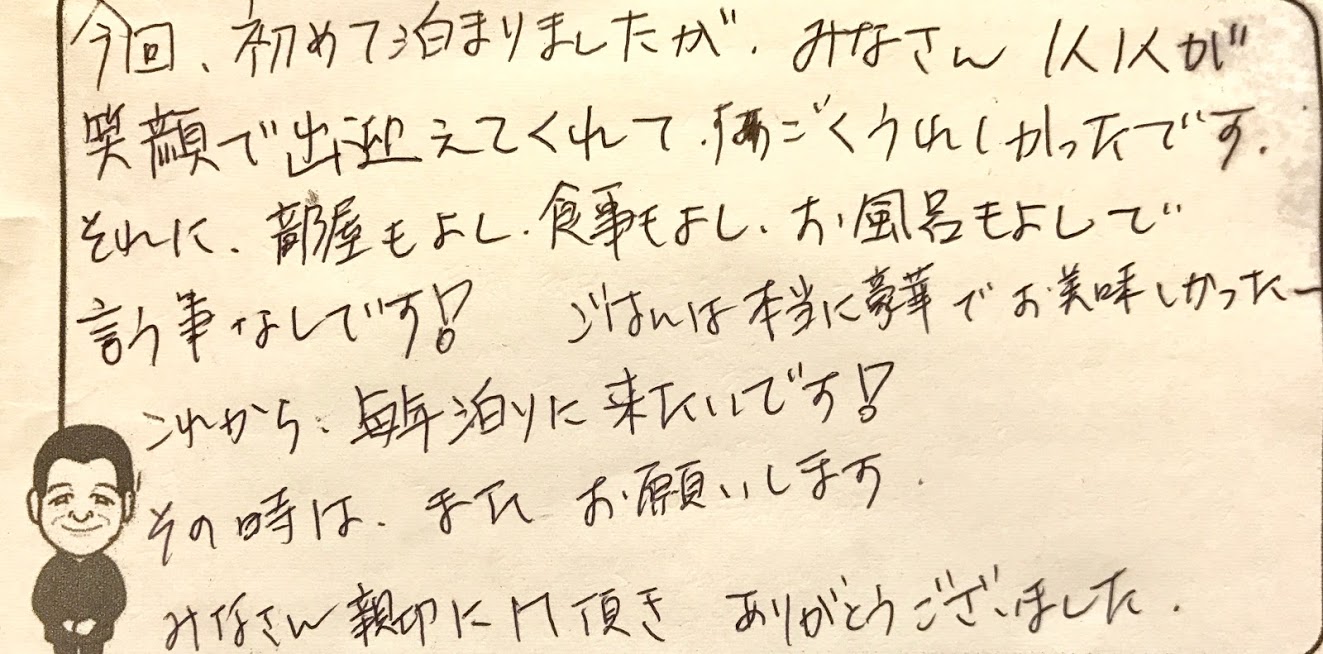 今回、初めて泊まりましたが、みなさん1人1人が
笑顔で出迎えてくれて、すごくうれしかったです。
それに、部屋もよし、食事もよし、お風呂もよしで
言う事なしです!! ごはんは本当に豪華でお美味しかったー
これから、毎年泊りに来たいです!!
その時は、また お願いします。
みなさん親切に 頂き ありがとうございました。